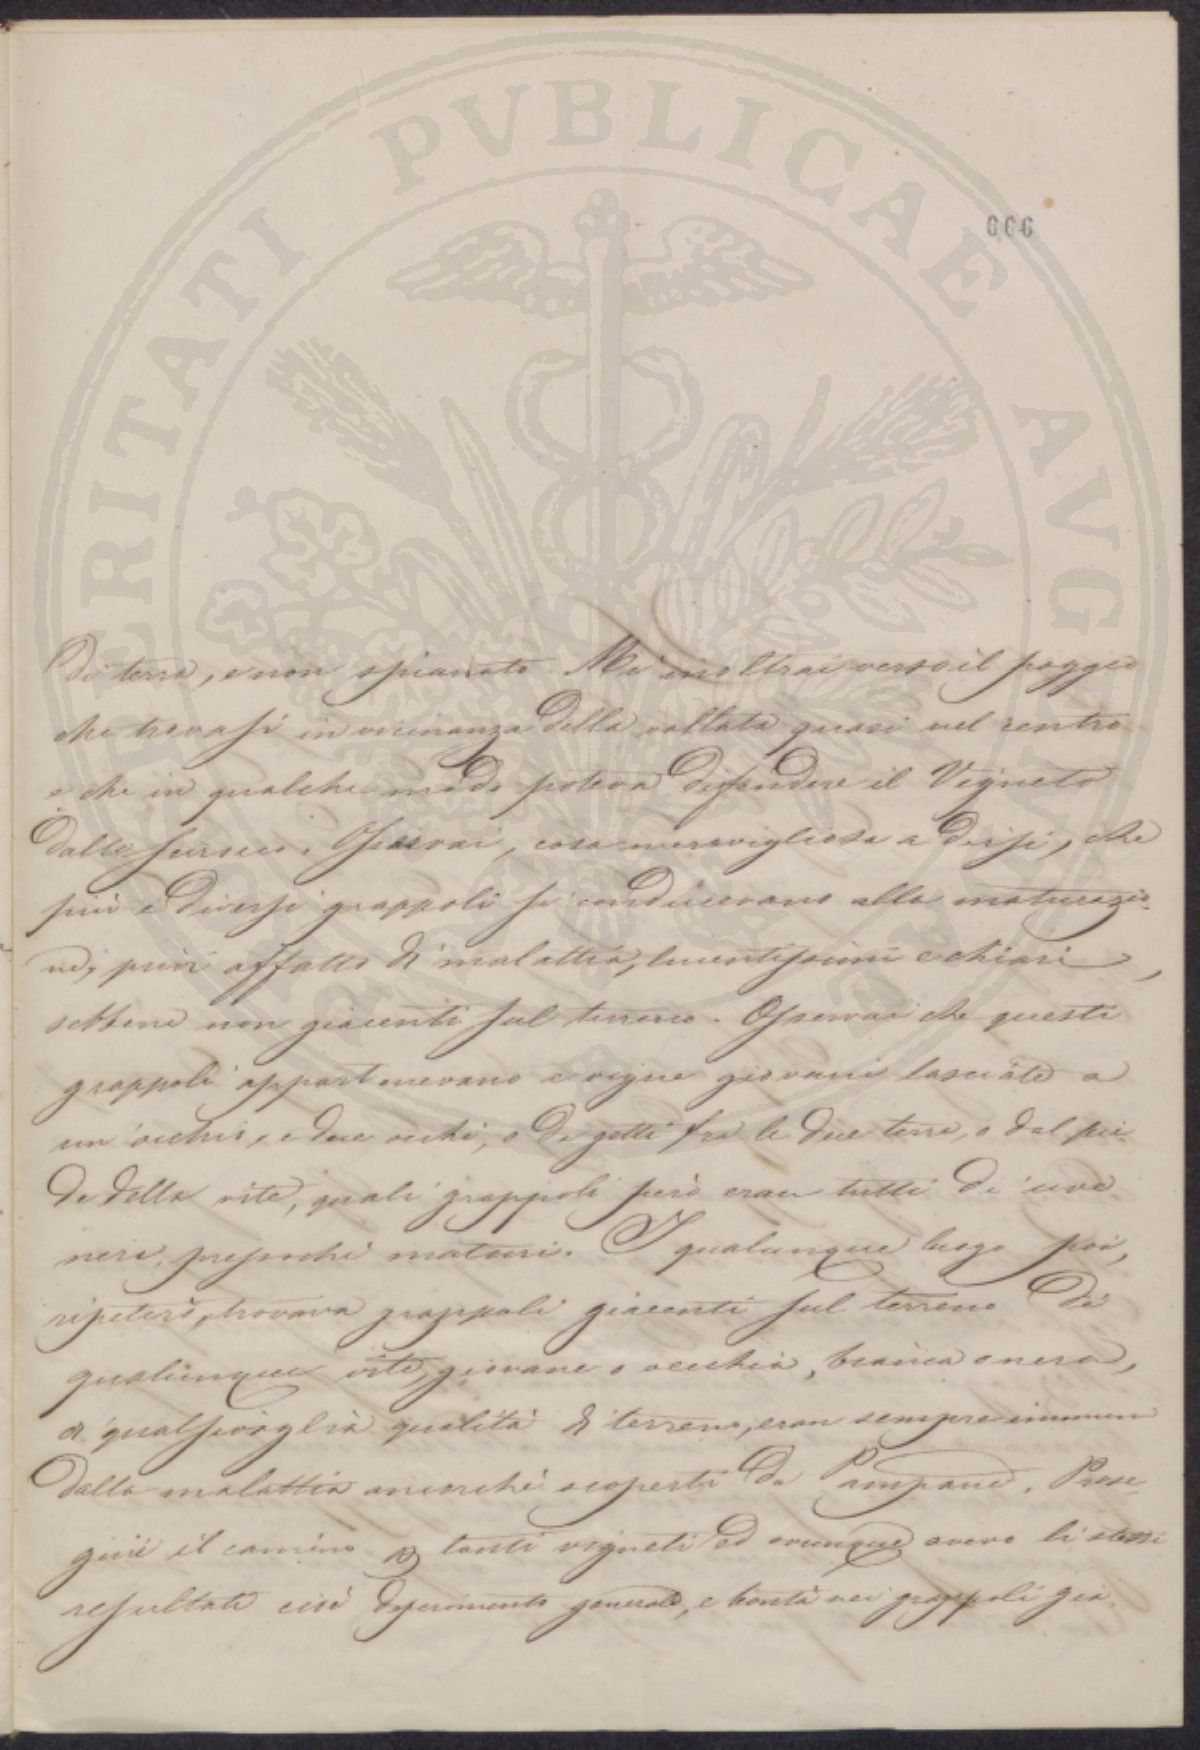 PROSPERITATI PVBLICAE AVGENDAE
666
di terra, e non spianato. Mi inoltrai verso il poggio
che trovasi in vicinanza della vallata quasi nel centro
e che in qualche modo poteva difendere il Vigneto
dallo scirocco. Osservai, cosa meravigliosa a dirsi, che
più e diversi grappoli si conducevano alla maturazio-
ne, puri affatto di malattia, lucentissimi e chiari,
sebbene non giacenti sul terreno. Osservai che questi
grappoli appartenevano a vigne giovani lasciate a
un'occhio, e due occhi, o di getti fra le due terre, o dal pie-
de della vite, quali grappoli però eran tutti di uva
nera, presochè maturi. I qualunque luogo poi,
ripeterò, trovava grappoli giacenti sul terreno di
qualunque vite, giovane o vecchia, bianca o nera,
di qualsivoglia qualità di terreno, eran sempre immuni
dalla malattia ancorchè scoperti da Pampane. Prose-
guii il camino di tanti vigneti ed ovunque aveva li stessi
resultati cioè deperimento generale, e bontà nei grappoli gia-